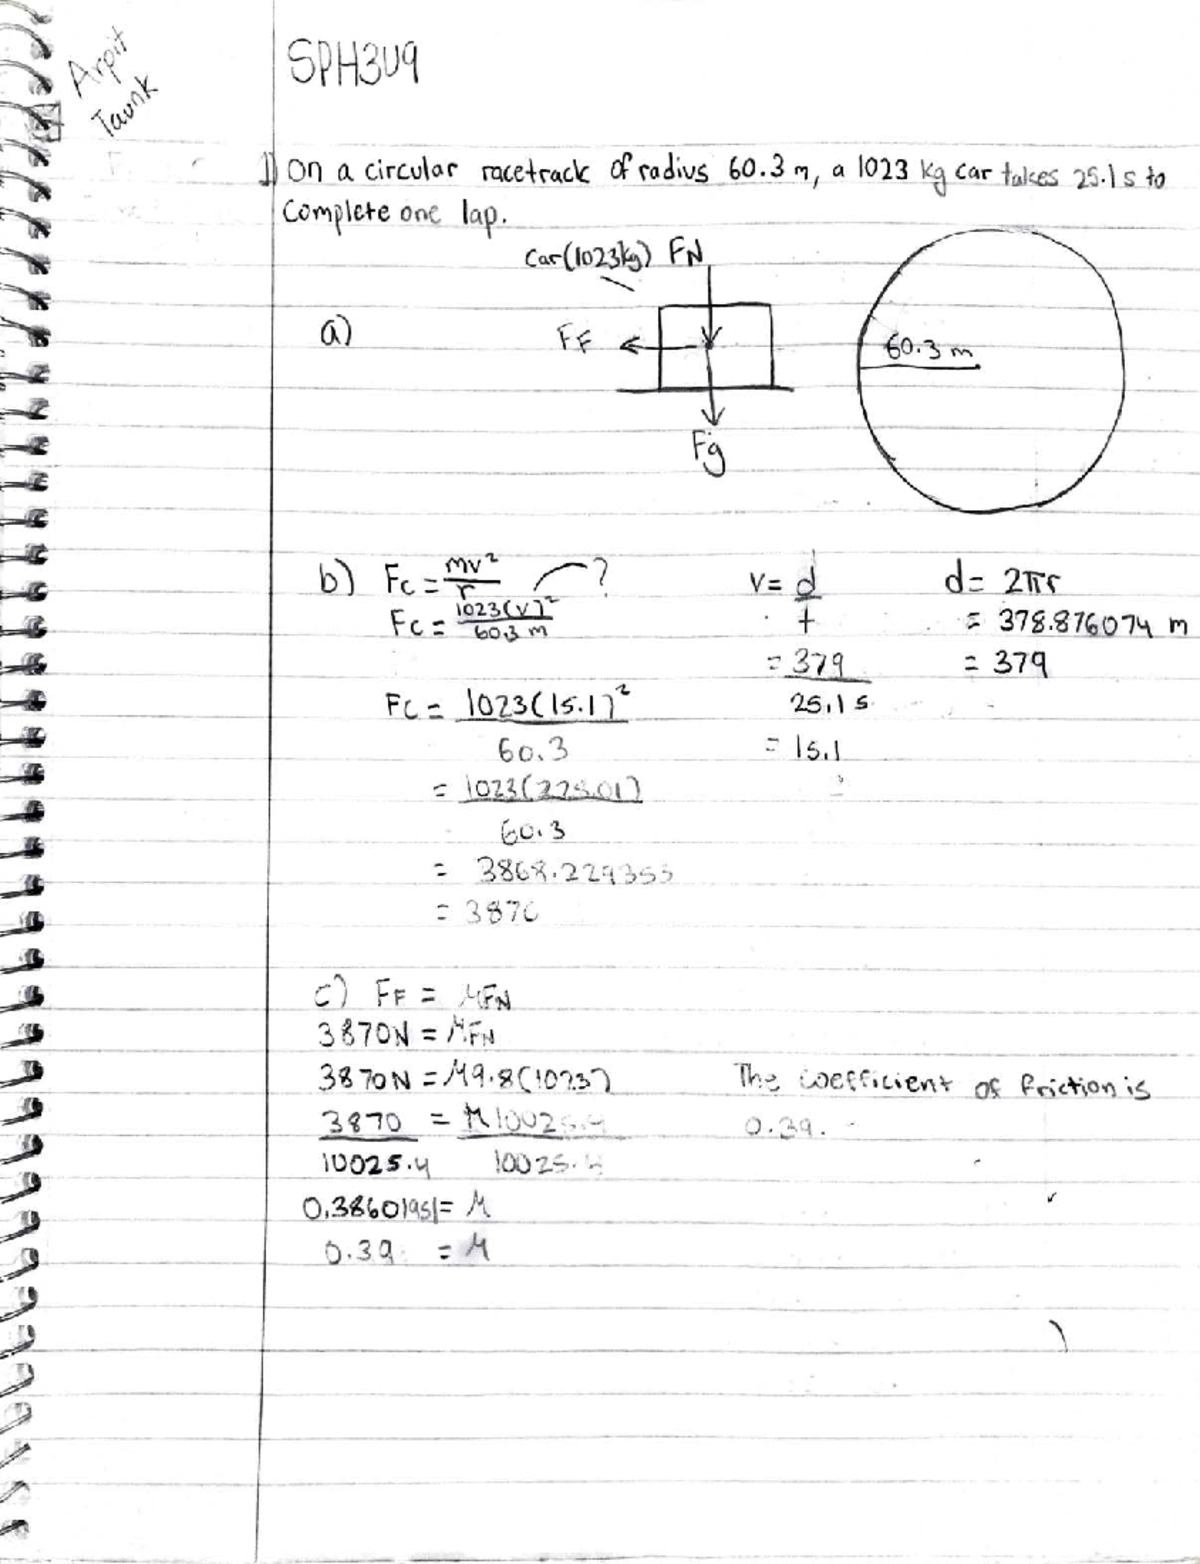 Arpit
Taunk
SPH3U9
1) On a circular racetrack of radius 60.3 m, a 1023 kg car takes 25.1 s to
complete one lap.
car(1023kg) FN
a)
FF
60.3 m
Fg
b) Fc = mv²/r ?
Fc = 1023(v)²/60.3 m
v = d/t
= 379/25.1 s
= 15.1
d = 2πr
= 378.876074 m
= 379
Fc = 1023(15.1)²/60.3
= 1023(228.01)/60.3
= 3868.229353
= 3870
c) FF = μFN
3870N = μFN
3870N = μ9.8(1023)
3870/10025.4 = μ10025.4/10025.4
0.3860195 = μ
0.39 = μ
The coefficient of friction is
0.39.